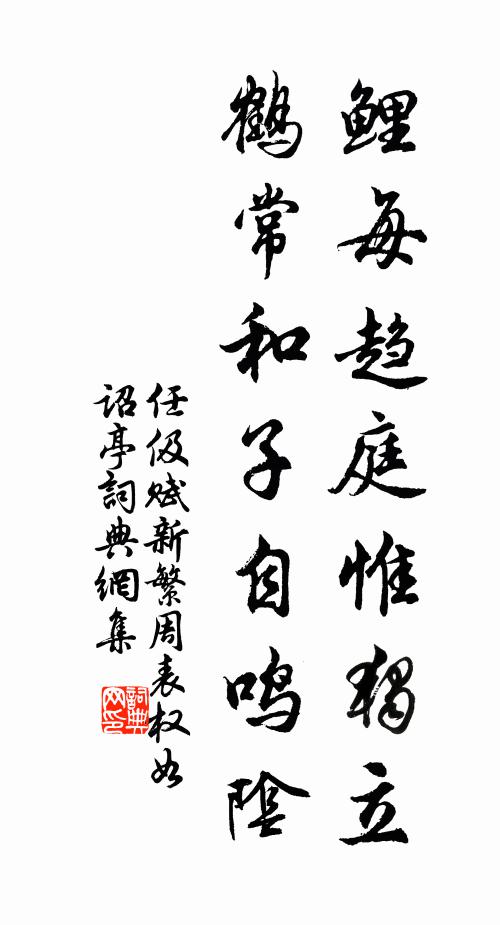 鯉每趋庭惟獨立
鶴常和子自鳴陰
任伋赋新繁周表权如
诏亭詞典網集
詞典网印